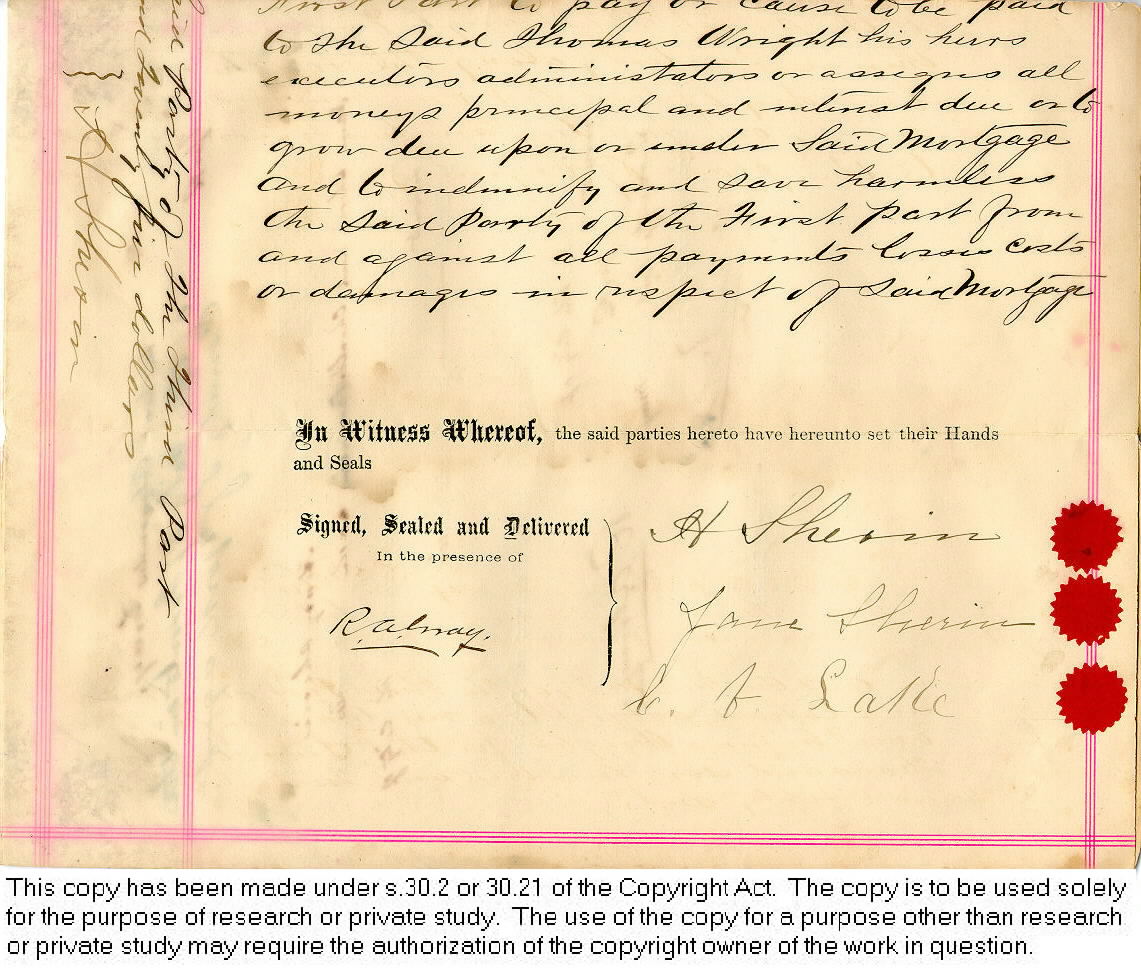 First Part to pay or cause to be paid
to the said Thomas Wright his heirs
executors administators or assigns all
moneys principal and interest due or to
grow due upon or under said Mortgage
and to indemnify and save harmless
the said Party of the First part from
and against all payments losses costs
or damages in respect of said Mortgage
said Party of the Third Part
and Twenty five dollars
H Sherin
In Witness Whereof, the said parties hereto have hereunto set their Hands
and Seals
Signed, Sealed and Delivered
In the presence of
H Sherin
Jane Sherin
Lake
This copy has been made under s.30.2 or 30.21 of the Copyright Act. The copy is to be used solely
for the purpose of research or private study. The use of the copy for a purpose other than research
or private study may require the authorization of the copyright owner of the work in question.